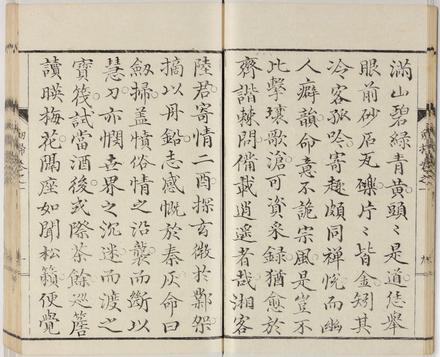 滿山碧綠青黃頭〻是道恁擧
眼前砂石瓦礫片〻皆金矧其
冷客孤吟寄趣頗同禪悅而幽
人癖韻命意不詭宗風是豈不
比擊壤歌滄可資采錄猶愈於
齊諧棘問備載逍遙者哉湘客
陸君寄情二酉探玄微於鄴架
摘以丹鉛志感慨於秦灰命曰
劔掃盖憤俗情之沿襲而斷以
慧刀亦憫去界之沉迷而渡之
寶筏試當酒後或際茶餘巡簷
讀暎梅花隔座如聞松籟便覺